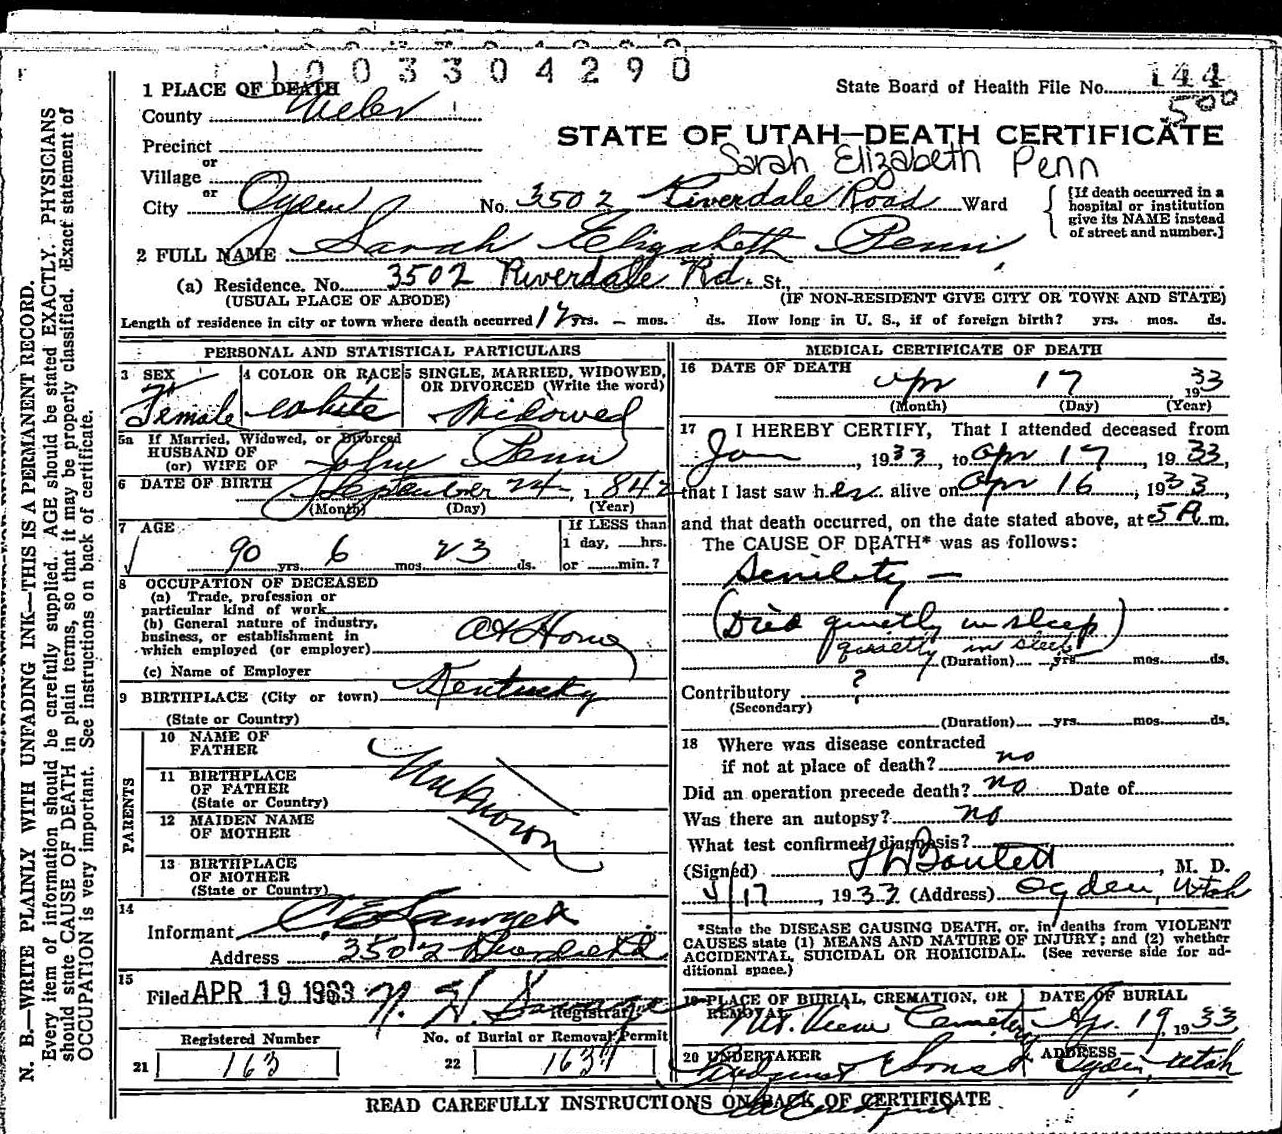 1003304290
1 PLACE OF DEATH
State Board of Health File No. 144
County Weber
500
STATE OF UTAH—DEATH CERTIFICATE
Precinct
Sarah Elizabeth Penn
or
Village
or
City Ogden No. 3502 Riverdale Road Ward
[If death occurred in a
hospital or institution
give its NAME instead
of street and number.]
2 FULL NAME Sarah Elizabeth Penn
(a) Residence. No. 3502 Riverdale Rd. St.,
(USUAL PLACE OF ABODE) (IF NON-RESIDENT GIVE CITY OR TOWN AND STATE)
Length of residence in city or town where death occurred yrs. – mos. ds. How long in U. S., if of foreign birth? yrs. mos. ds.
N. B.—WRITE PLAINLY WITH UNFADING INK—THIS IS A PERMANENT RECORD.
Every item of information should be carefully supplied. AGE should be stated EXACTLY. PHYSICIANS
should state CAUSE OF DEATH in plain terms, so that it may be properly classified. Exact statement of
OCCUPATION is very important. See instructions on back of certificate.
PERSONAL AND STATISTICAL PARTICULARS
3 SEX
Female
4 COLOR OR RACE
white
5 SINGLE, MARRIED, WIDOWED,
OR DIVORCED (Write the word)
Widowed
5a If Married, Widowed, or Divorced
HUSBAND OF
(or) WIFE OF John Penn
6 DATE OF BIRTH September 24, 1842
(Month) (Day) (Year)
7 AGE
90 yrs. 6 mos. 23 ds.
If LESS than
1 day, hrs.
or min.?
8 OCCUPATION OF DECEASED
(a) Trade, profession or
particular kind of work
(b) General nature of industry,
business, or establishment in
which employed (or employer) At Home
(c) Name of Employer
9 BIRTHPLACE (City or town) Kentucky
(State or Country)
PARENTS
10 NAME OF
FATHER
11 BIRTHPLACE
OF FATHER
(State or Country)
Unknown
12 MAIDEN NAME
OF MOTHER
13 BIRTHPLACE
OF MOTHER
(State or Country)
14
Informant C E Sawyer
Address 3502 Riverdale Rd
15
Filed APR 19 1933
Registrar
Registered Number No. of Burial or Removal Permit
21 163 22
MEDICAL CERTIFICATE OF DEATH
16 DATE OF DEATH
Apr 17 1933
(Month) (Day) (Year)
17 I HEREBY CERTIFY, That I attended deceased from
Jan, 1933, to Apr 17, 1933,
that I last saw her alive on Apr 16, 1933,
and that death occurred, on the date stated above, at 5 A. m.
The CAUSE OF DEATH* was as follows:
Senility —
(Died quietly in sleep)
quietly in sleep
(Duration) yrs. mos. ds.
Contributory ?
(Secondary)
(Duration) yrs. mos. ds.
18 Where was disease contracted
if not at place of death? no
Did an operation precede death? no Date of
Was there an autopsy? no
What test confirmed diagnosis?
(Signed) M. D.
1933 (Address) Ogden, Utah
*State the DISEASE CAUSING DEATH, or, in deaths from VIOLENT
CAUSES state (1) MEANS AND NATURE OF INJURY; and (2) whether
ACCIDENTAL, SUICIDAL OR HOMICIDAL. (See reverse side for ad-
ditional space.)
19 PLACE OF BURIAL, CREMATION, OR
REMOVAL
Mt. View Cemetery
DATE OF BURIAL
Ap. 19, 1933
20 UNDERTAKER
Lindquist & Sons
ADDRESS—
Ogden, Utah
READ CAREFULLY INSTRUCTIONS ON BACK OF CERTIFICATE